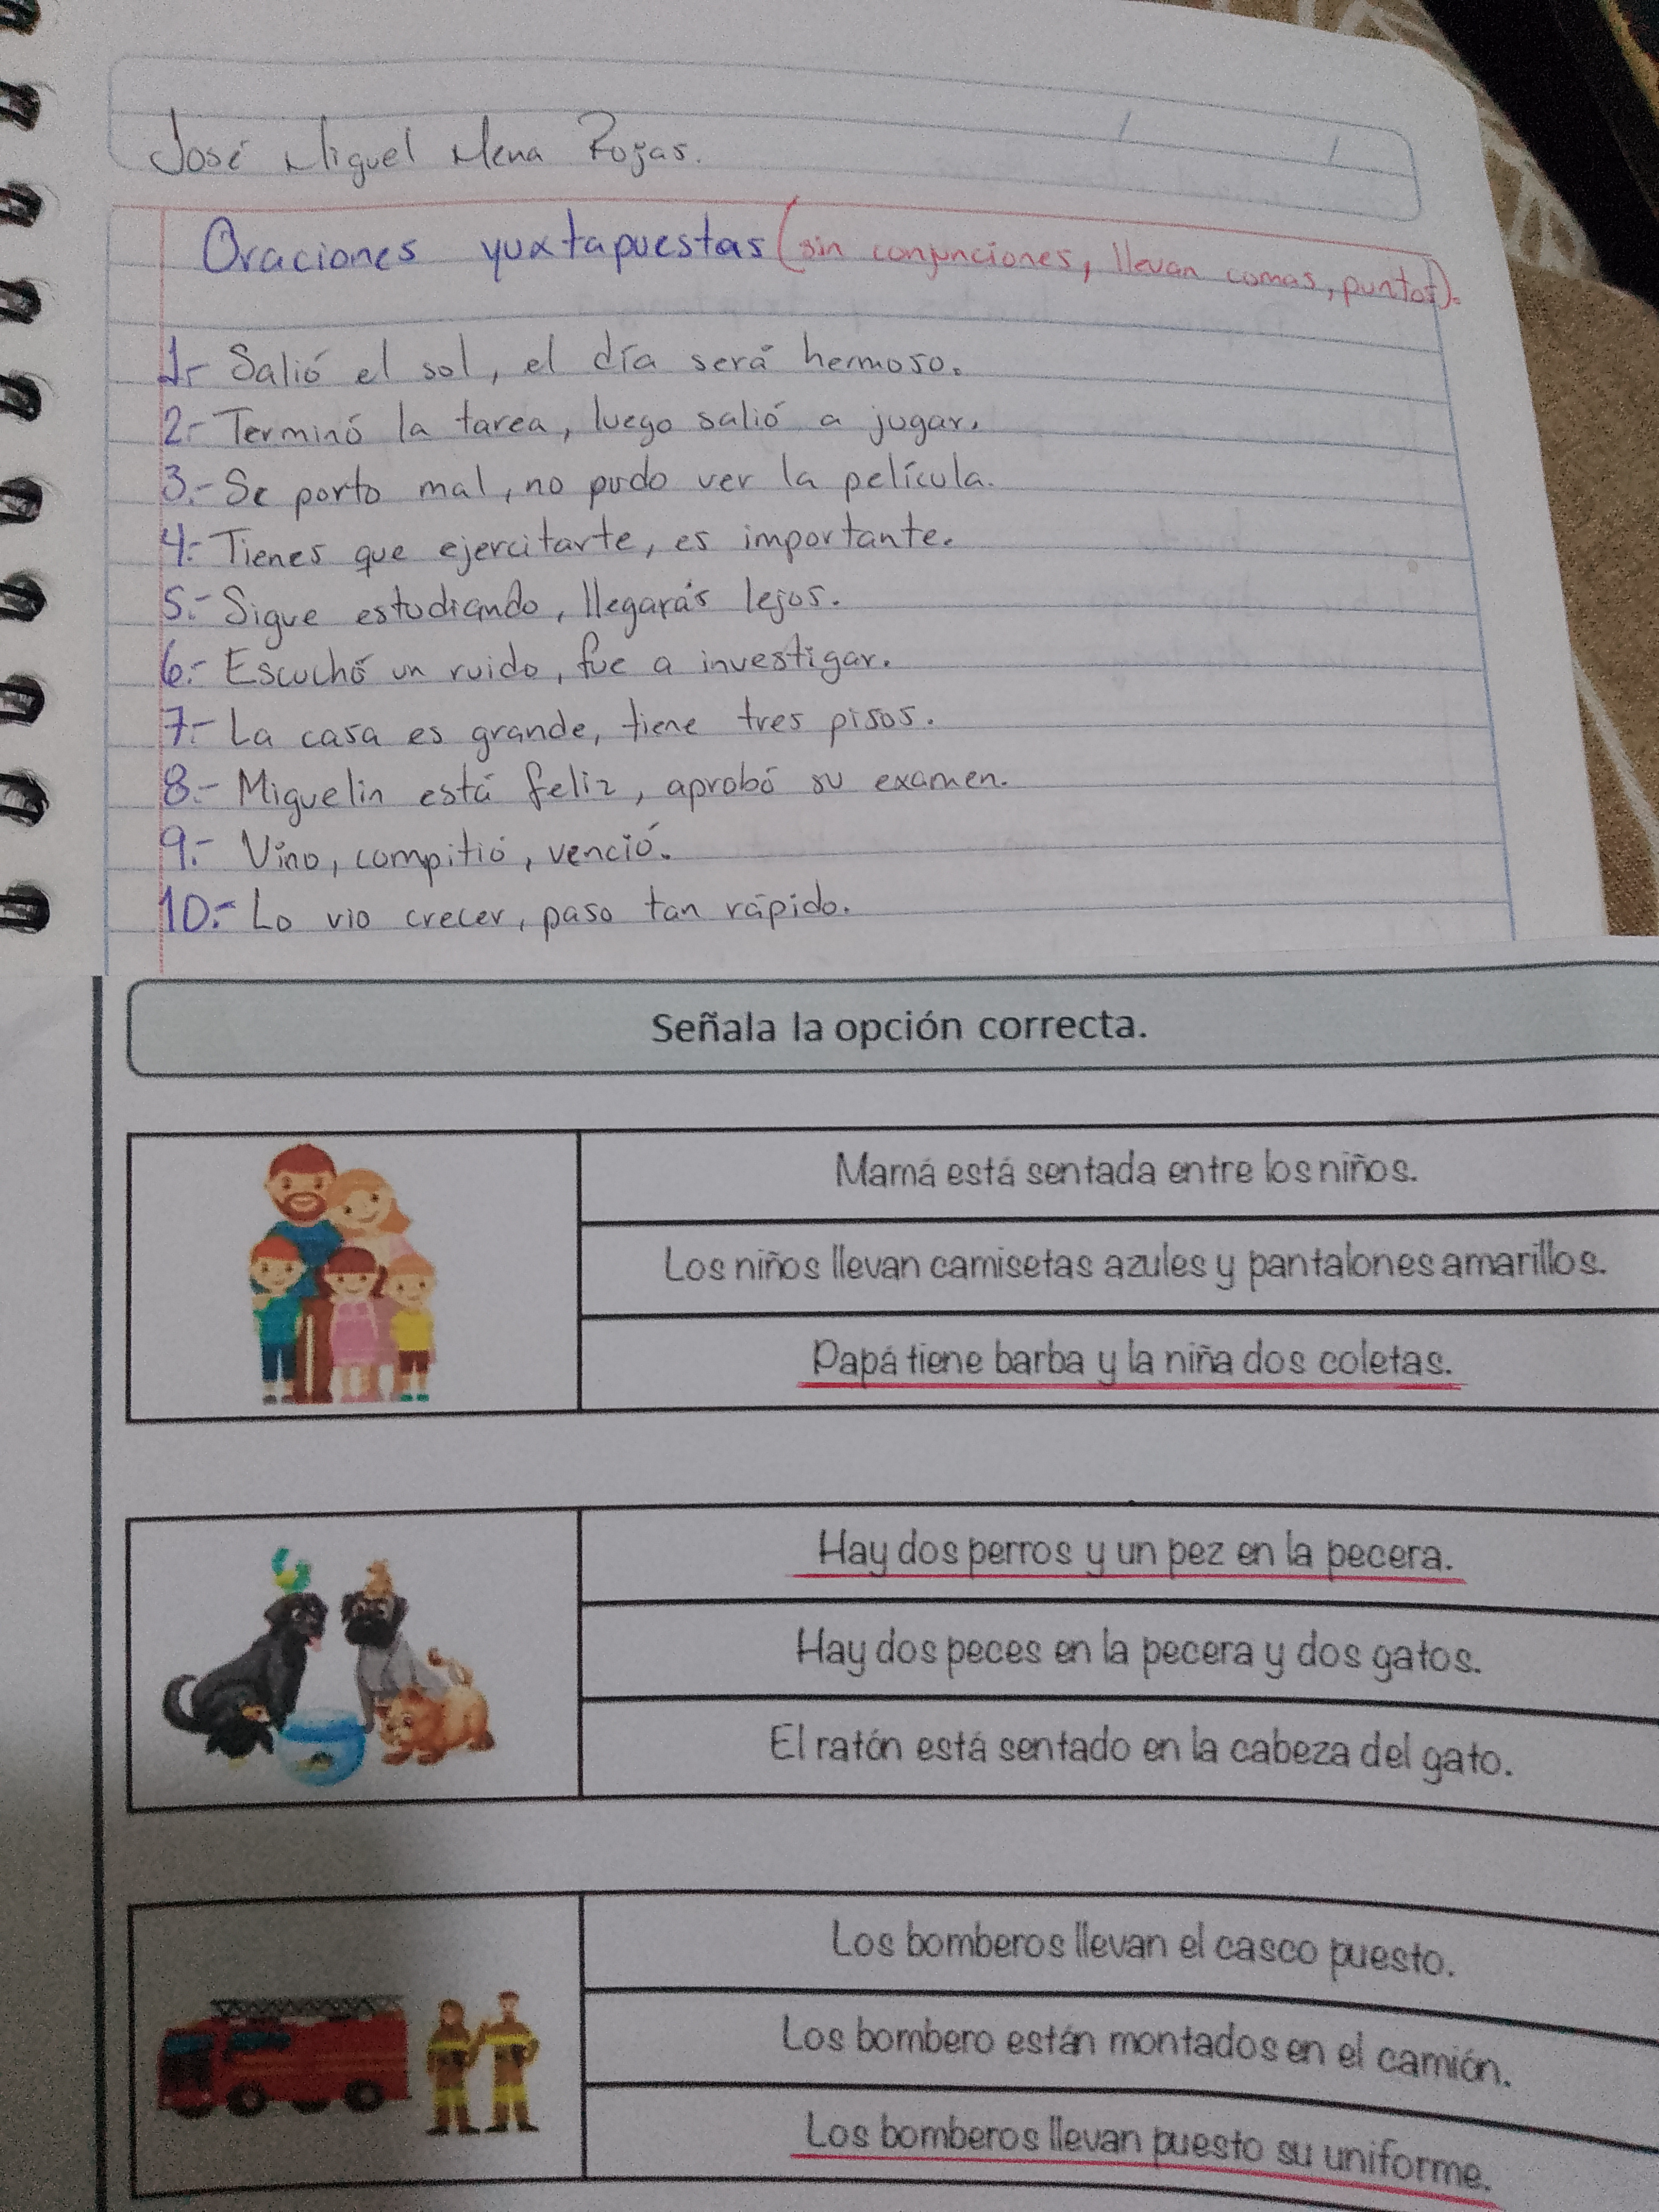 José Miguel Mena Rojas.
Oraciones yuxtapuestas (sin conjunciones, llevan comas, puntos).
1.- Salió el sol, el día será hermoso.
2.- Terminó la tarea, luego salió a jugar.
3.- Se porto mal, no pudo ver la película.
4.- Tienes que ejercitarte, es importante.
5.- Sigue estudiando, llegarás lejos.
6.- Escuchó un ruido, fue a investigar.
7.- La casa es grande, tiene tres pisos.
8.- Miguelin está feliz, aprobó su examen.
9.- Vino, compitió, venció.
10.- Lo vio crecer, paso tan rápido.
Señala la opción correcta.
Mamá está sentada entre los niños.
Los niños llevan camisetas azules y pantalones amarillos.
Papá tiene barba y la niña dos coletas.
Hay dos perros y un pez en la pecera.
Hay dos peces en la pecera y dos gatos.
El ratón está sentado en la cabeza del gato.
Los bomberos llevan el casco puesto.
Los bombero están montados en el camión.
Los bomberos llevan puesto su uniforme.